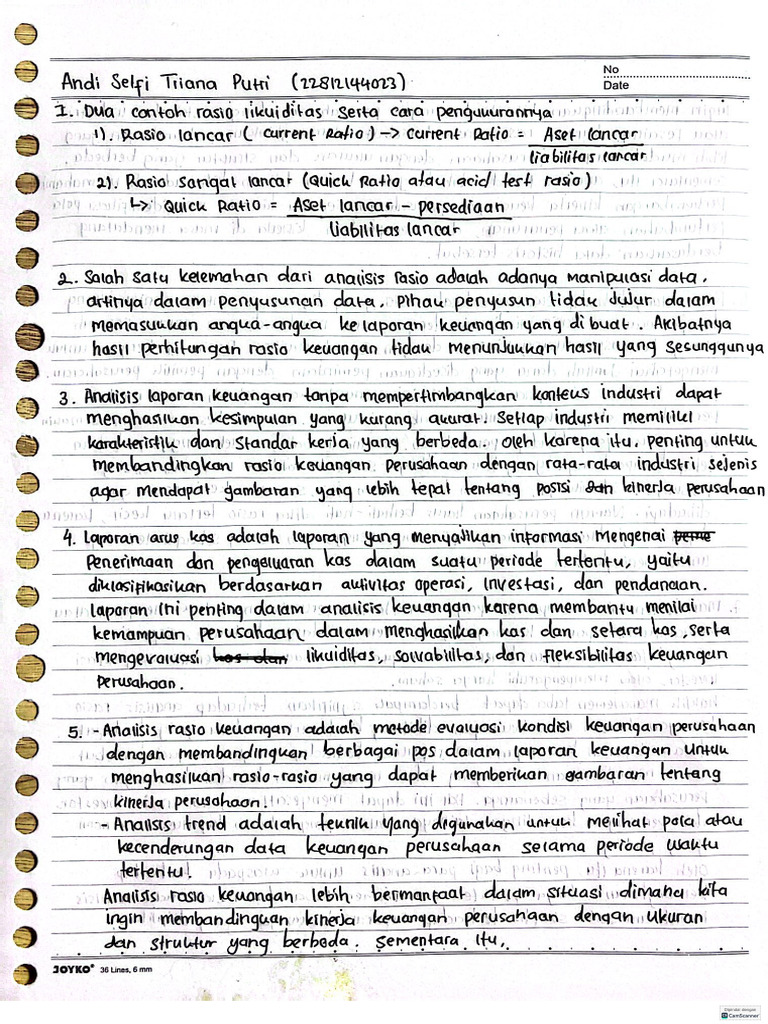 No
Date
Andi Selfi Triana Putri (22812144023)
1. Dua contoh rasio likuiditas serta cara pengukurannya
1) Rasio lancar (current Ratio) → current Ratio = Aset lancar
liabilitas lancar
2). Rasio sangat lancar (Quick Ratio atau acid test rasio)
↳ Quick Ratio = Aset lancar - persediaan
liabilitas lancar
2. Salah satu kelemahan dari analisis rasio adalah adanya manipulasi data,
artinya dalam penyusunan data, pihak penyusun tidak jujur dalam
memasukkan angka-angka ke laporan keuangan yang di buat. Akibatnya
hasil perhitungan rasio keuangan tidak menunjukkan hasil yang sesunggunya
3. Analisis laporan keuangan tanpa mempertimbangkan konteks industri dapat
menghasilkan kesimpulan yang kurang akurat. Setiap industri memiliki
karakteristik dan standar kerja yang berbeda. oleh karena itu, penting untuk
membandingkan rasio keuangan perusahaan dengan rata-rata industri sejenis
agar mendapat gambaran yang lebih tepat tentang posisi dan kinerja perusahaan
4. Laporan arus kas adalah laporan yang menyajikan informasi mengenai peme
Penerimaan dan pengeluaran kas dalam suatu periode tertentu, yaitu
diklasifikasikan berdasarkan aktivitas operasi, investasi, dan pendanaan.
laporan ini penting dalam analisis keuangan karena membantu menilai
kemampuan perusahaan dalam menghasilkan kas dan setara kas, serta
mengevaluasi kas dan likuiditas, solvabilitas, dan fleksibilitas keuangan
perusahaan.
5. - Analisis rasio keuangan adalah metode evaluasi kondisi keuangan perusahaan
dengan membandingkan berbagai pos dalam laporan keuangan untuk
menghasilkan rasio-rasio yang dapat memberikan gambaran tentang
kinerja perusahaan.
- Analisis trend adalah teknik yang digunakan untuk melihat pola atau
kecenderungan data keuangan perusahaan selama periode waktu
tertentu.
Analisis rasio keuangan lebih bermanfaat dalam situasi dimana kita
ingin membandingkan kinerja keuangan perusahaan dengan ukuran
dan struktur yang berbeda. Sementara itu,
JOYKO® 36 Lines, 6 mm
CamScanner